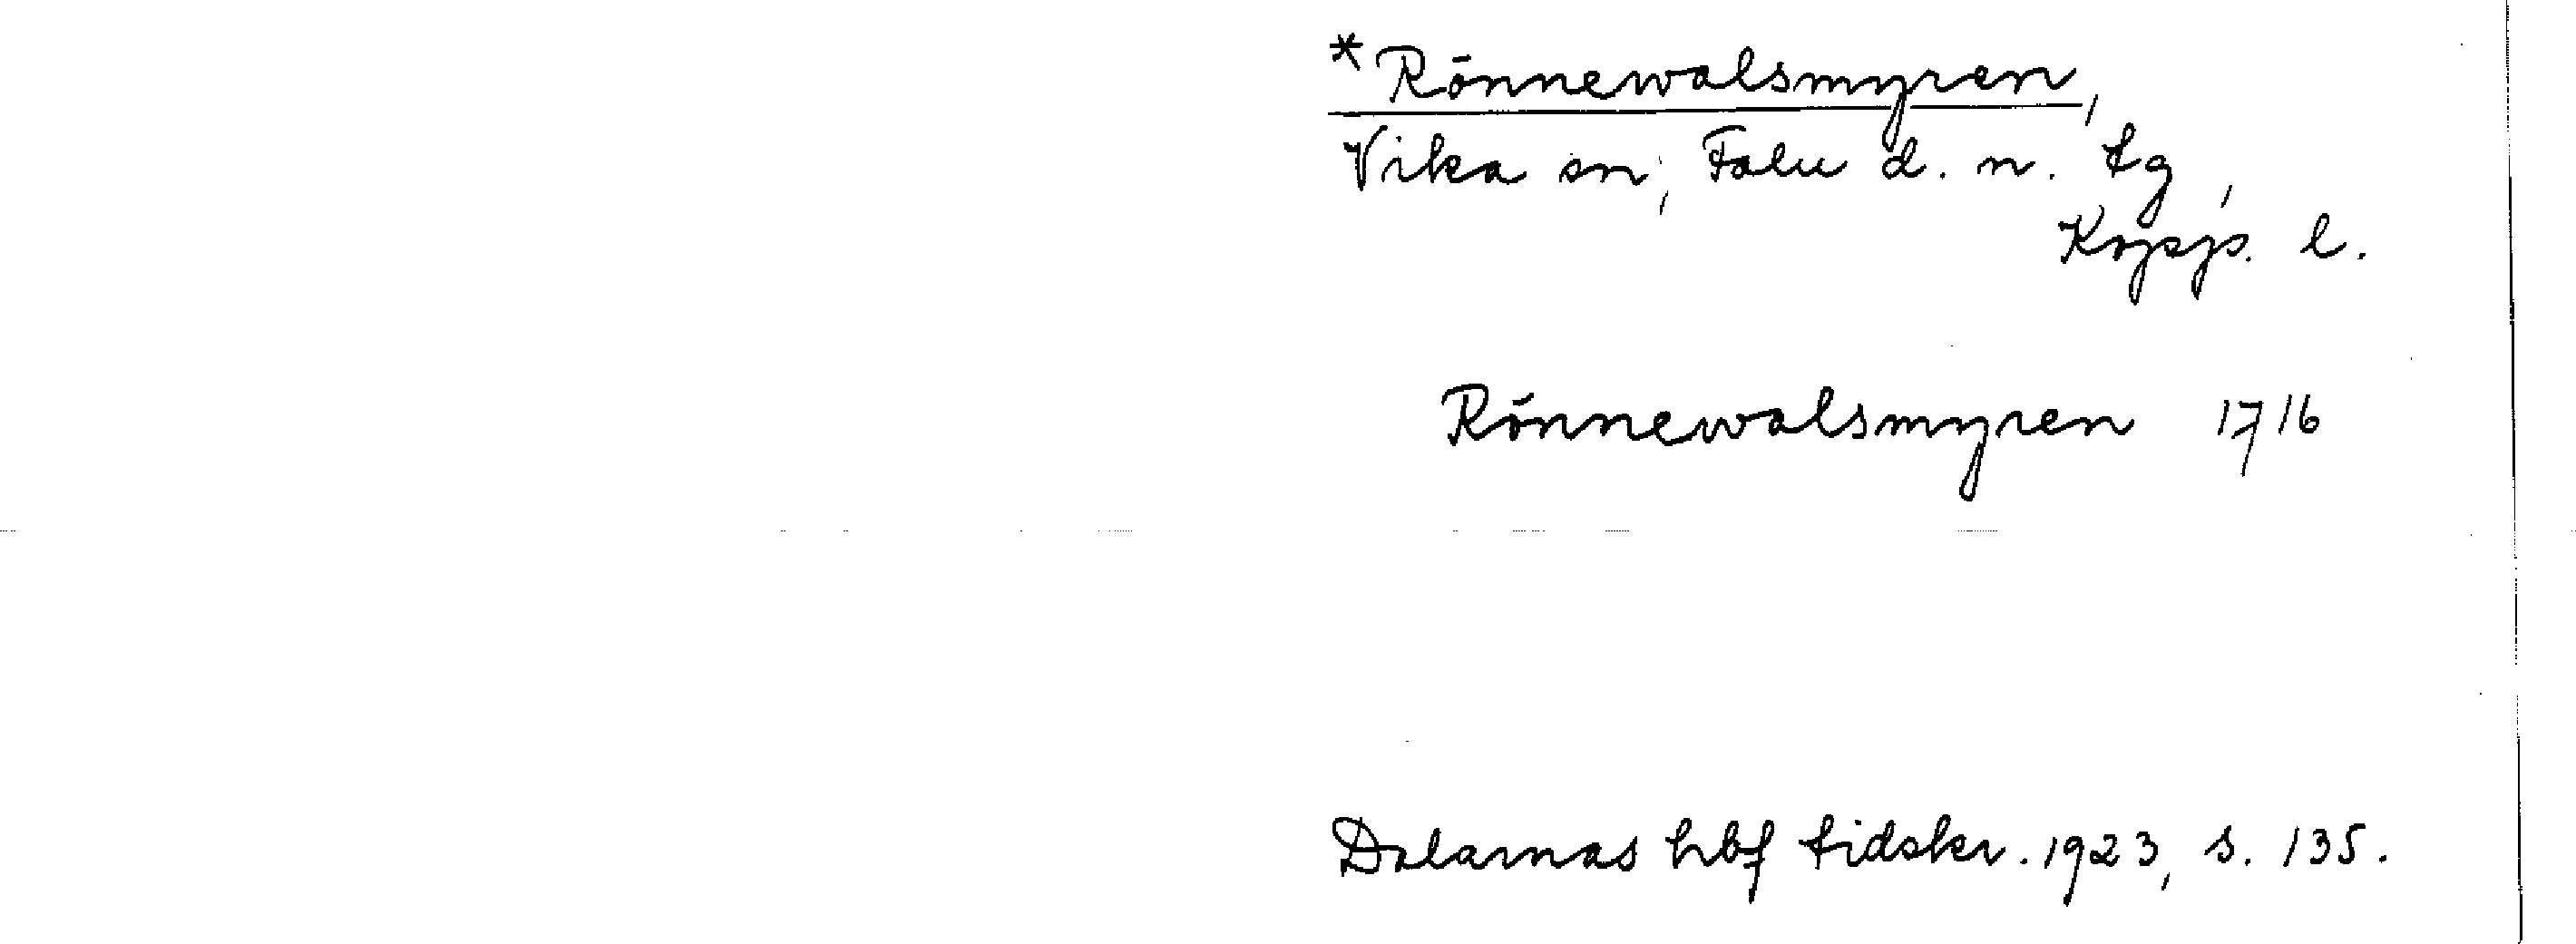 *Rönnewalsmyren,
Vika sn, Falu d. n. tg,
Kopp. l.
Rönnewalsmyren 1716
Dalarnas hbf tidskr. 1923, s. 135.